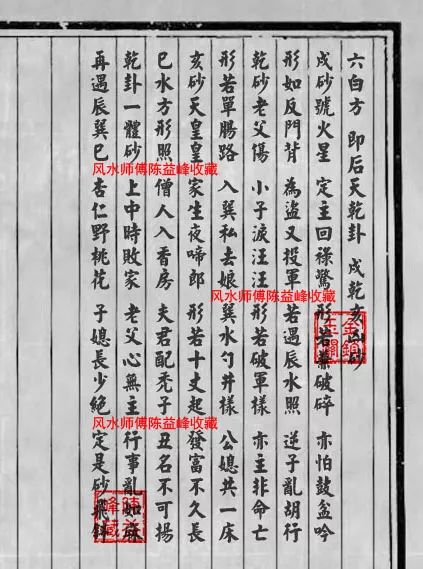 六白方 即后天乾卦 戌乾亥凶砂
戌砂號火星 定主回祿驚 形若藥破碎 亦怕鼓盆吟
形如反門背 為盜又投軍 若遇辰水照 逆子亂胡行
乾砂老父傷 小子淚汪汪 形若破軍樣 亦主非命亡
形若單腸路 入巽私去娘 巽水勺井樣 公媳共一床
亥砂天皇皇 家生夜啼郎 形若十丈起 發富不久長
巳水方形照 僧人入香房 夫君配禿子 丑名不可揚
乾卦一體砂 上中時敗家 老父心無主 行事亂如麻
再遇辰巽巳 杏仁野桃花 子媳長少絕 定是砂飛斜
风水师傅陈益峰收藏
风水师傅陈益峰收藏
风水师傅陈益峰收藏
金鎖玉關
陳益峰藏